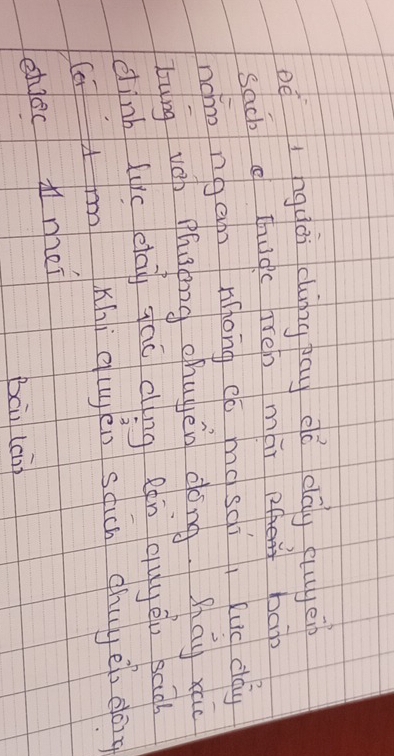 Đề 1 người dùng tay để đẩy quyển
sách thước trên mặt bàn
nằm ngan không có ma sát, lực đẩy
trùng với phương chuyển động. hãy xác
định lực đẩy tác dụng lên quyển sách
là 1 m khi quyển sách chuyển động
được 1 mét